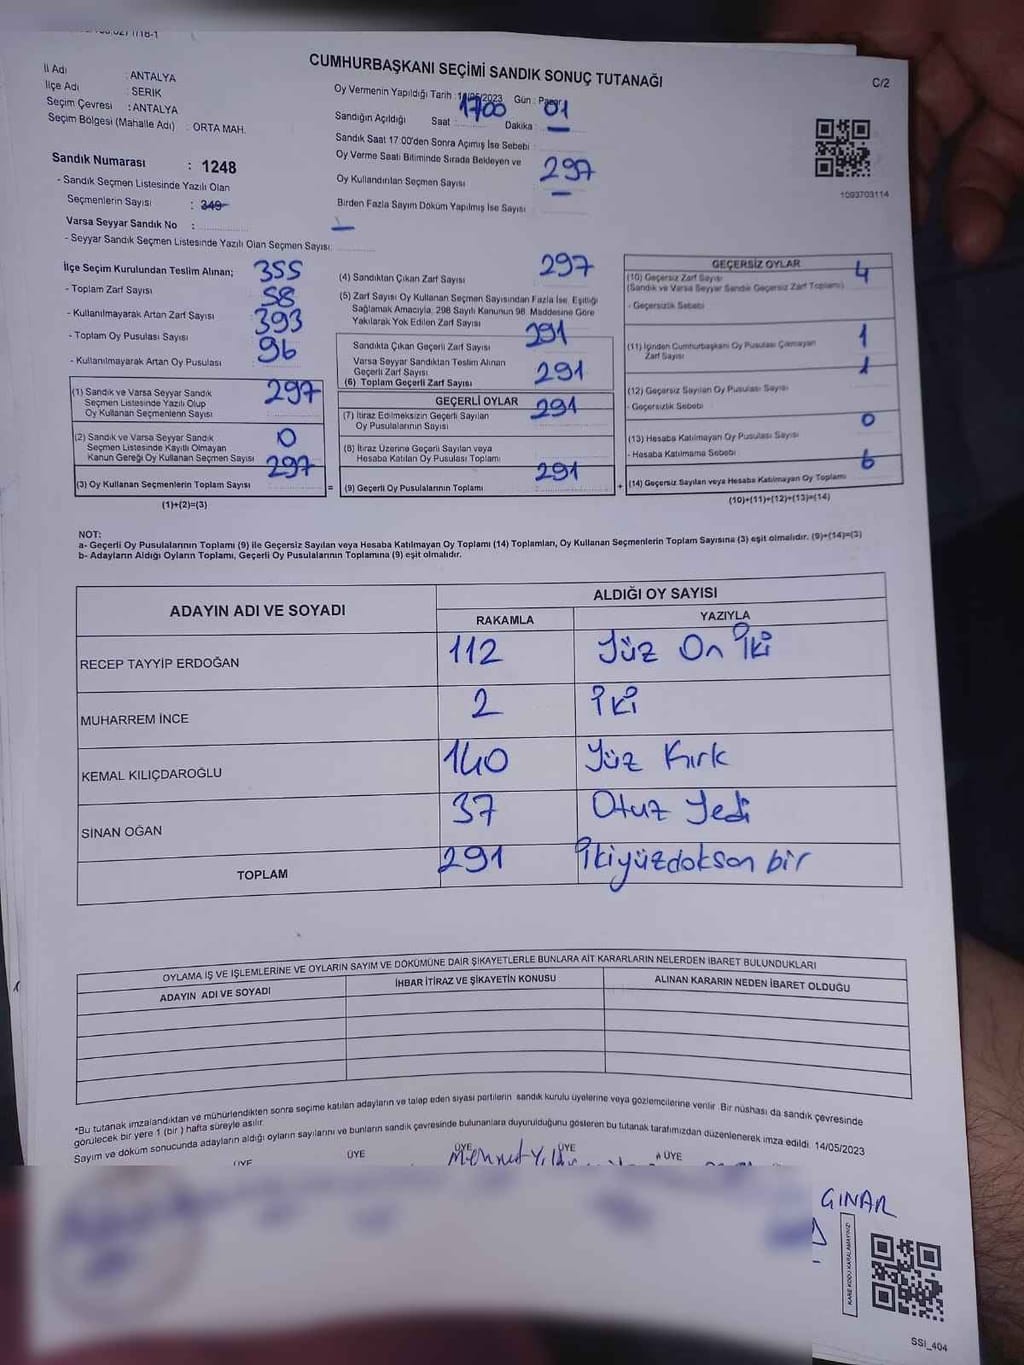 CUMHURBAŞKANI SEÇİMİ SANDIK SONUÇ TUTANAĞI
C/2
İl Adı : ANTALYA
İlçe Adı : SERIK
Seçim Çevresi : ANTALYA
Seçim Bölgesi (Mahalle Adı) : ORTA MAH.
Sandık Numarası : 1248
- Sandık Seçmen Listesinde Yazılı Olan
Seçmenlerin Sayısı : 349
Varsa Seyyar Sandık No :
- Seyyar Sandık Seçmen Listesinde Yazılı Olan Seçmen Sayısı:
Oy Vermenin Yapıldığı Tarih : 14/05/2023 Gün : Pazar
Sandığın Açıldığı Saat 1700 Dakika 01
Sandık Saat 17:00'den Sonra Açımış İse Sebebi
Oy Verme Saati Bitiminde Sırada Bekleyen ve
Oy Kullandırılan Seçmen Sayısı 297
Birden Fazla Sayım Döküm Yapılmış İse Sayısı
1093703114
İlçe Seçim Kurulundan Teslim Alınan;
- Toplam Zarf Sayısı 355
- Kullanılmayarak Artan Zarf Sayısı 58
- Toplam Oy Pusulası Sayısı 393
- Kullanılmayarak Artan Oy Pusulası 96
(1) Sandık ve Varsa Seyyar Sandık
Seçmen Listesinde Yazılı Olup
Oy Kullanan Seçmenlerin Sayısı 297
(2) Sandık ve Varsa Seyyar Sandık
Seçmen Listesinde Kayıtlı Olmayan
Kanun Gereği Oy Kullanan Seçmen Sayısı 0
(3) Oy Kullanan Seçmenlerin Toplam Sayısı 297
(1)+(2)=(3)
(4) Sandıktan Çıkan Zarf Sayısı 297
(5) Zarf Sayısı Oy Kullanan Seçmen Sayısından Fazla İse, Eşitliği
Sağlamak Amacıyla, 298 Sayılı Kanunun 98. Maddesine Göre
Yakılarak Yok Edilen Zarf Sayısı
Sandıkta Çıkan Geçerli Zarf Sayısı 291
Varsa Seyyar Sandıktan Teslim Alınan
Geçerli Zarf Sayısı
(6) Toplam Geçerli Zarf Sayısı 291
GEÇERLİ OYLAR
(7) İtiraz Edilmeksizin Geçerli Sayılan
Oy Pusulalarının Sayısı 291
(8) İtiraz Üzerine Geçerli Sayılan veya
Hesaba Katılan Oy Pusulası Toplamı
(9) Geçerli Oy Pusulalarının Toplamı 291
GEÇERSİZ OYLAR
(10) Geçersiz Zarf Sayısı 4
(Sandık ve Varsa Seyyar Sandık Geçersiz Zarf Toplamı)
- Geçersizlik Sebebi
(11) İçinden Cumhurbaşkanı Oy Pusulası Çıkmayan
Zarf Sayısı 1
(12) Geçersiz Sayılan Oy Pusulası Sayısı 1
- Geçersizlik Sebebi
(13) Hesaba Katılmayan Oy Pusulası Sayısı 0
- Hesaba Katılmama Sebebi
(14) Geçersiz Sayılan veya Hesaba Katılmayan Oy Toplamı 6
(10)+(11)+(12)+(13)=(14)
NOT:
a- Geçerli Oy Pusulalarının Toplamı (9) ile Geçersiz Sayılan veya Hesaba Katılmayan Oy Toplamı (14) Toplamları, Oy Kullanan Seçmenlerin Toplam Sayısına (3) eşit olmalıdır. (9)+(14)=(3)
b- Adayların Aldığı Oyların Toplamı, Geçerli Oy Pusulalarının Toplamına (9) eşit olmalıdır.
ADAYIN ADI VE SOYADI
ALDIĞI OY SAYISI
RAKAMLA YAZIYLA
RECEP TAYYİP ERDOĞAN 112 Yüz On İki
MUHARREM İNCE 2 İki
KEMAL KILIÇDAROĞLU 140 Yüz Kırk
SİNAN OĞAN 37 Otuz Yedi
TOPLAM 291 İkiyüzdoksan bir
OYLAMA İŞ VE İŞLEMLERİNE VE OYLARIN SAYIM VE DÖKÜMÜNE DAİR ŞİKAYETLERLE BUNLARA AİT KARARLARIN NELERDEN İBARET BULUNDUKLARI
ADAYIN ADI VE SOYADI
İHBAR İTİRAZ VE ŞİKAYETİN KONUSU
ALINAN KARARIN NEDEN İBARET OLDUĞU
*Bu tutanak imzalandıktan ve mühürlendikten sonra seçime katılan adayların ve talep eden siyasi partilerin sandık kurulu üyelerine veya gözlemcilerine verilir. Bir nüshası da sandık çevresinde
görülecek bir yere 1 (bir) hafta süreyle asılır.
Sayım ve döküm sonucunda adayların aldığı oyların sayılarını ve bunların sandık çevresinde bulunanlara duyurulduğunu gösteren bu tutanak tarafımızdan düzenlenerek imza edildi. 14/05/2023
ÜYE ÜYE ÜYE ÜYE ÜYE
GINAR
KARE KODU KARALAMAYINIZ!
SSI_404